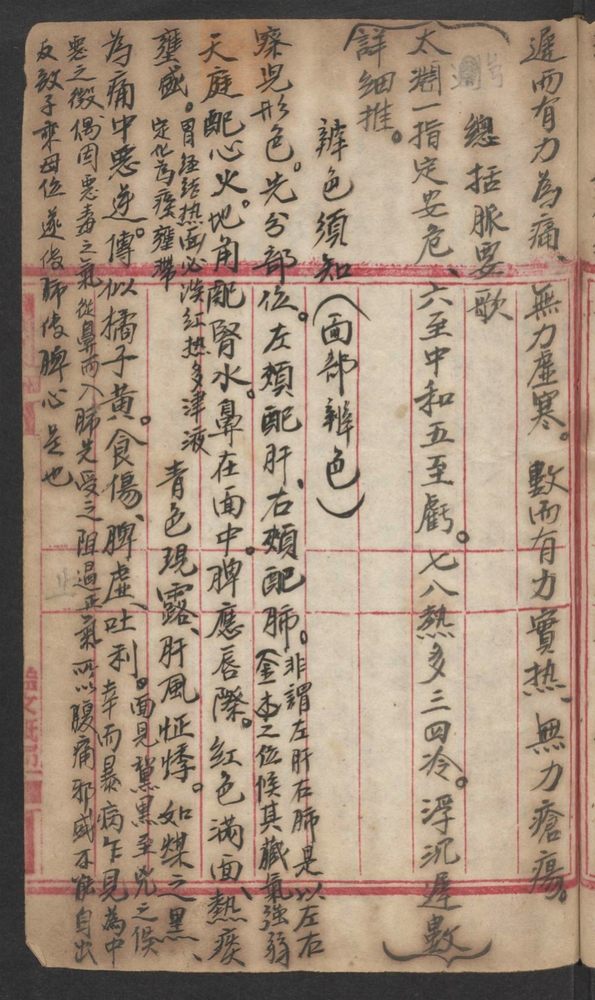 遲而有力為痛、無力虛寒。數而有力實热、無力瘡瘍。
總括脈要歌
太淵一指定安危、六至中和五至虧。七八熱多三四冷。浮沉遲數
詳細推。
辨色須知(面部辨色)
察児形色。先分部位。左頰配肝、右頰配肺。非謂左肝右肺是以左右
金木之位候其臟氣強弱
天庭配心火。地角配腎水。鼻在面中。脾應唇際。紅色滿面、熱痰
壅盛。胃經結热面必淡紅热多津液
定化為痰壅滯
青色現露、肝風怔悸。如煤之黑、
為痛中惡逆。傳似橘子黃。食傷、脾虛、吐利。面見黧黑至兇之候
幸而暴病乍見為中
惡之徵偶因惡毒之氣從鼻而入肺先受之阻遏正氣所以腹痛邪盛不能自出
反敦子乘母位遂後肺傳脾心是也